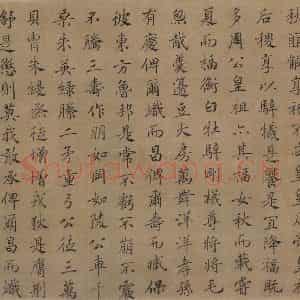 后稷享以騂犧是饗是宜降福既
多周公皇祖亦其福女秋而載嘗
夏而楅衡白牡騂剛犧尊將將毛
炰胾羹籩豆大房萬舞洋洋孝孫
有慶俾爾熾而昌俾爾壽而臧保
彼東方魯邦是常不虧不崩不震
不騰三壽作朋如岡如陵公車千
乘朱英綠縢二矛重弓公徒三萬
貝冑朱綅烝徒增增戎狄是膺荊
舒是懲則莫我敢承俾爾昌而熾